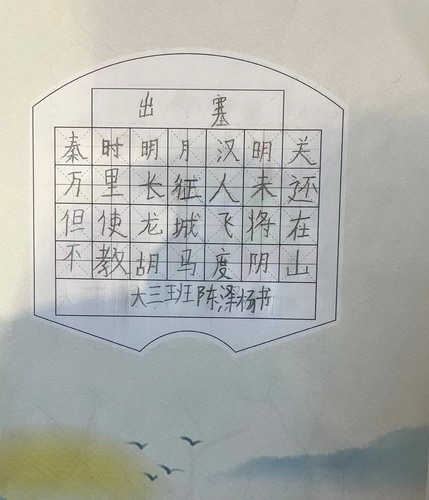 出塞
秦时明月汉明关
万里长征人未还
但使龙城飞将在
不教胡马度阴山
大三班陈泽杨书